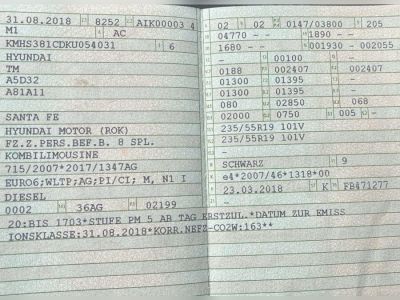 31.08.2018 8252 AIK00003 4
M1 AC
KMHS381CDKU054031 6
HYUNDAI
TM
A5D32
A81A11
SANTA FE
HYUNDAI MOTOR (ROK)
FZ.Z.PERS.BEF.B. 8 SPL.
KOMBILIMOUSINE
715/2007*2017/1347AG
EURO6;WLTP;AG;PI/CI; M, N1 I
DIESEL
0002 36AG 02199
02 02 0147/03800 205
04770 - 1890 -
1680 - 001930 - 002055
- 00100 -
0188 002407 002407
01300 01395 -
01300 01395 -
080 02850 068
02000 0750 005 -
235/55R19 101V
235/55R19 101V
-
SCHWARZ 9
e4*2007/46*1318*00
23.03.2018 K FB471277
20:BIS 1703*STUFE PM 5 AB TAG ERSTZUL.*DATUM ZUR EMISS
IONSKLASSE:31.08.2018*KORR.NEFZ-CO2W:163**